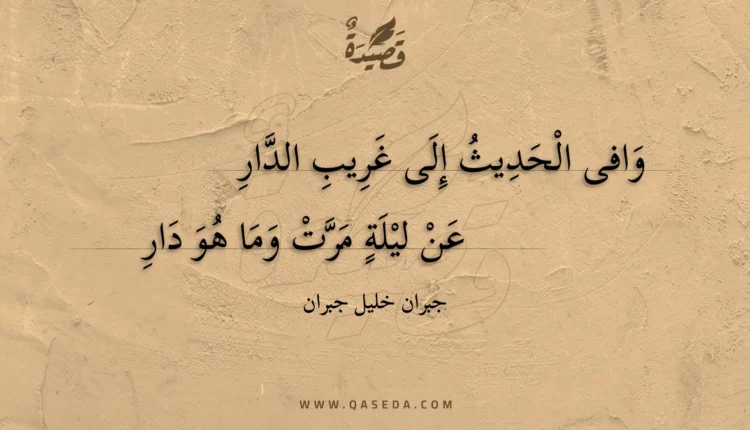 قَصِيدَةٌ
وَافى الْحَدِيثُ إِلَى غَرِيبِ الدَّارِ
عَنْ ليْلَةٍ مَرَّتْ وَمَا هُوَ دَارِ
جبران خليل جبران
WWW.QASEDA.COM